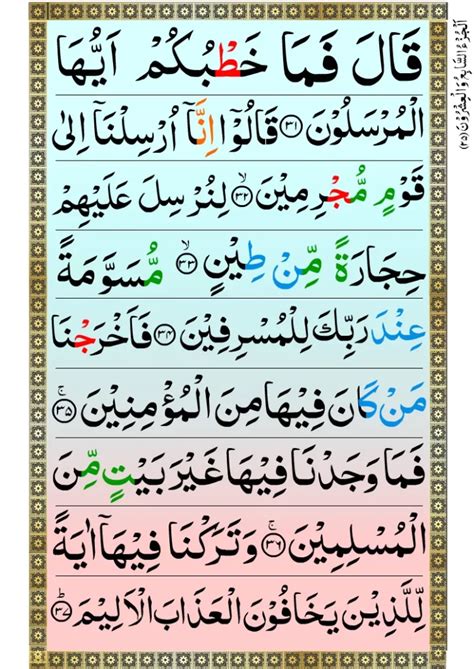 اَلْجُزْءُ السَّابِعُ وَالْعِشْرُوْنَ
قَالَ فَمَا خَطْبُكُمْ اَيُّهَا
الْمُرْسَلُوْنَ ٣١ قَالُوْٓا اِنَّآ اُرْسِلْنَآ اِلٰى
قَوْمٍ مُّجْرِمِيْنَ ۙ ٣٢ لِنُرْسِلَ عَلَيْهِمْ
حِجَارَةً مِّنْ طِيْنٍ ۙ ٣٣ مُّسَوَّمَةً
عِنْدَ رَبِّكَ لِلْمُسْرِفِيْنَ ٣٤ فَاَخْرَجْنَا
مَنْ كَانَ فِيْهَا مِنَ الْمُؤْمِنِيْنَ ۚ ٣٥
فَمَا وَجَدْنَا فِيْهَا غَيْرَ بَيْتٍ مِّنَ
الْمُسْلِمِيْنَ ۚ ٣٦ وَتَرَكْنَا فِيْهَآ اٰيَةً
لِّلَّذِيْنَ يَخَافُوْنَ الْعَذَابَ الْاَلِيْمَ ؕ ٣٧